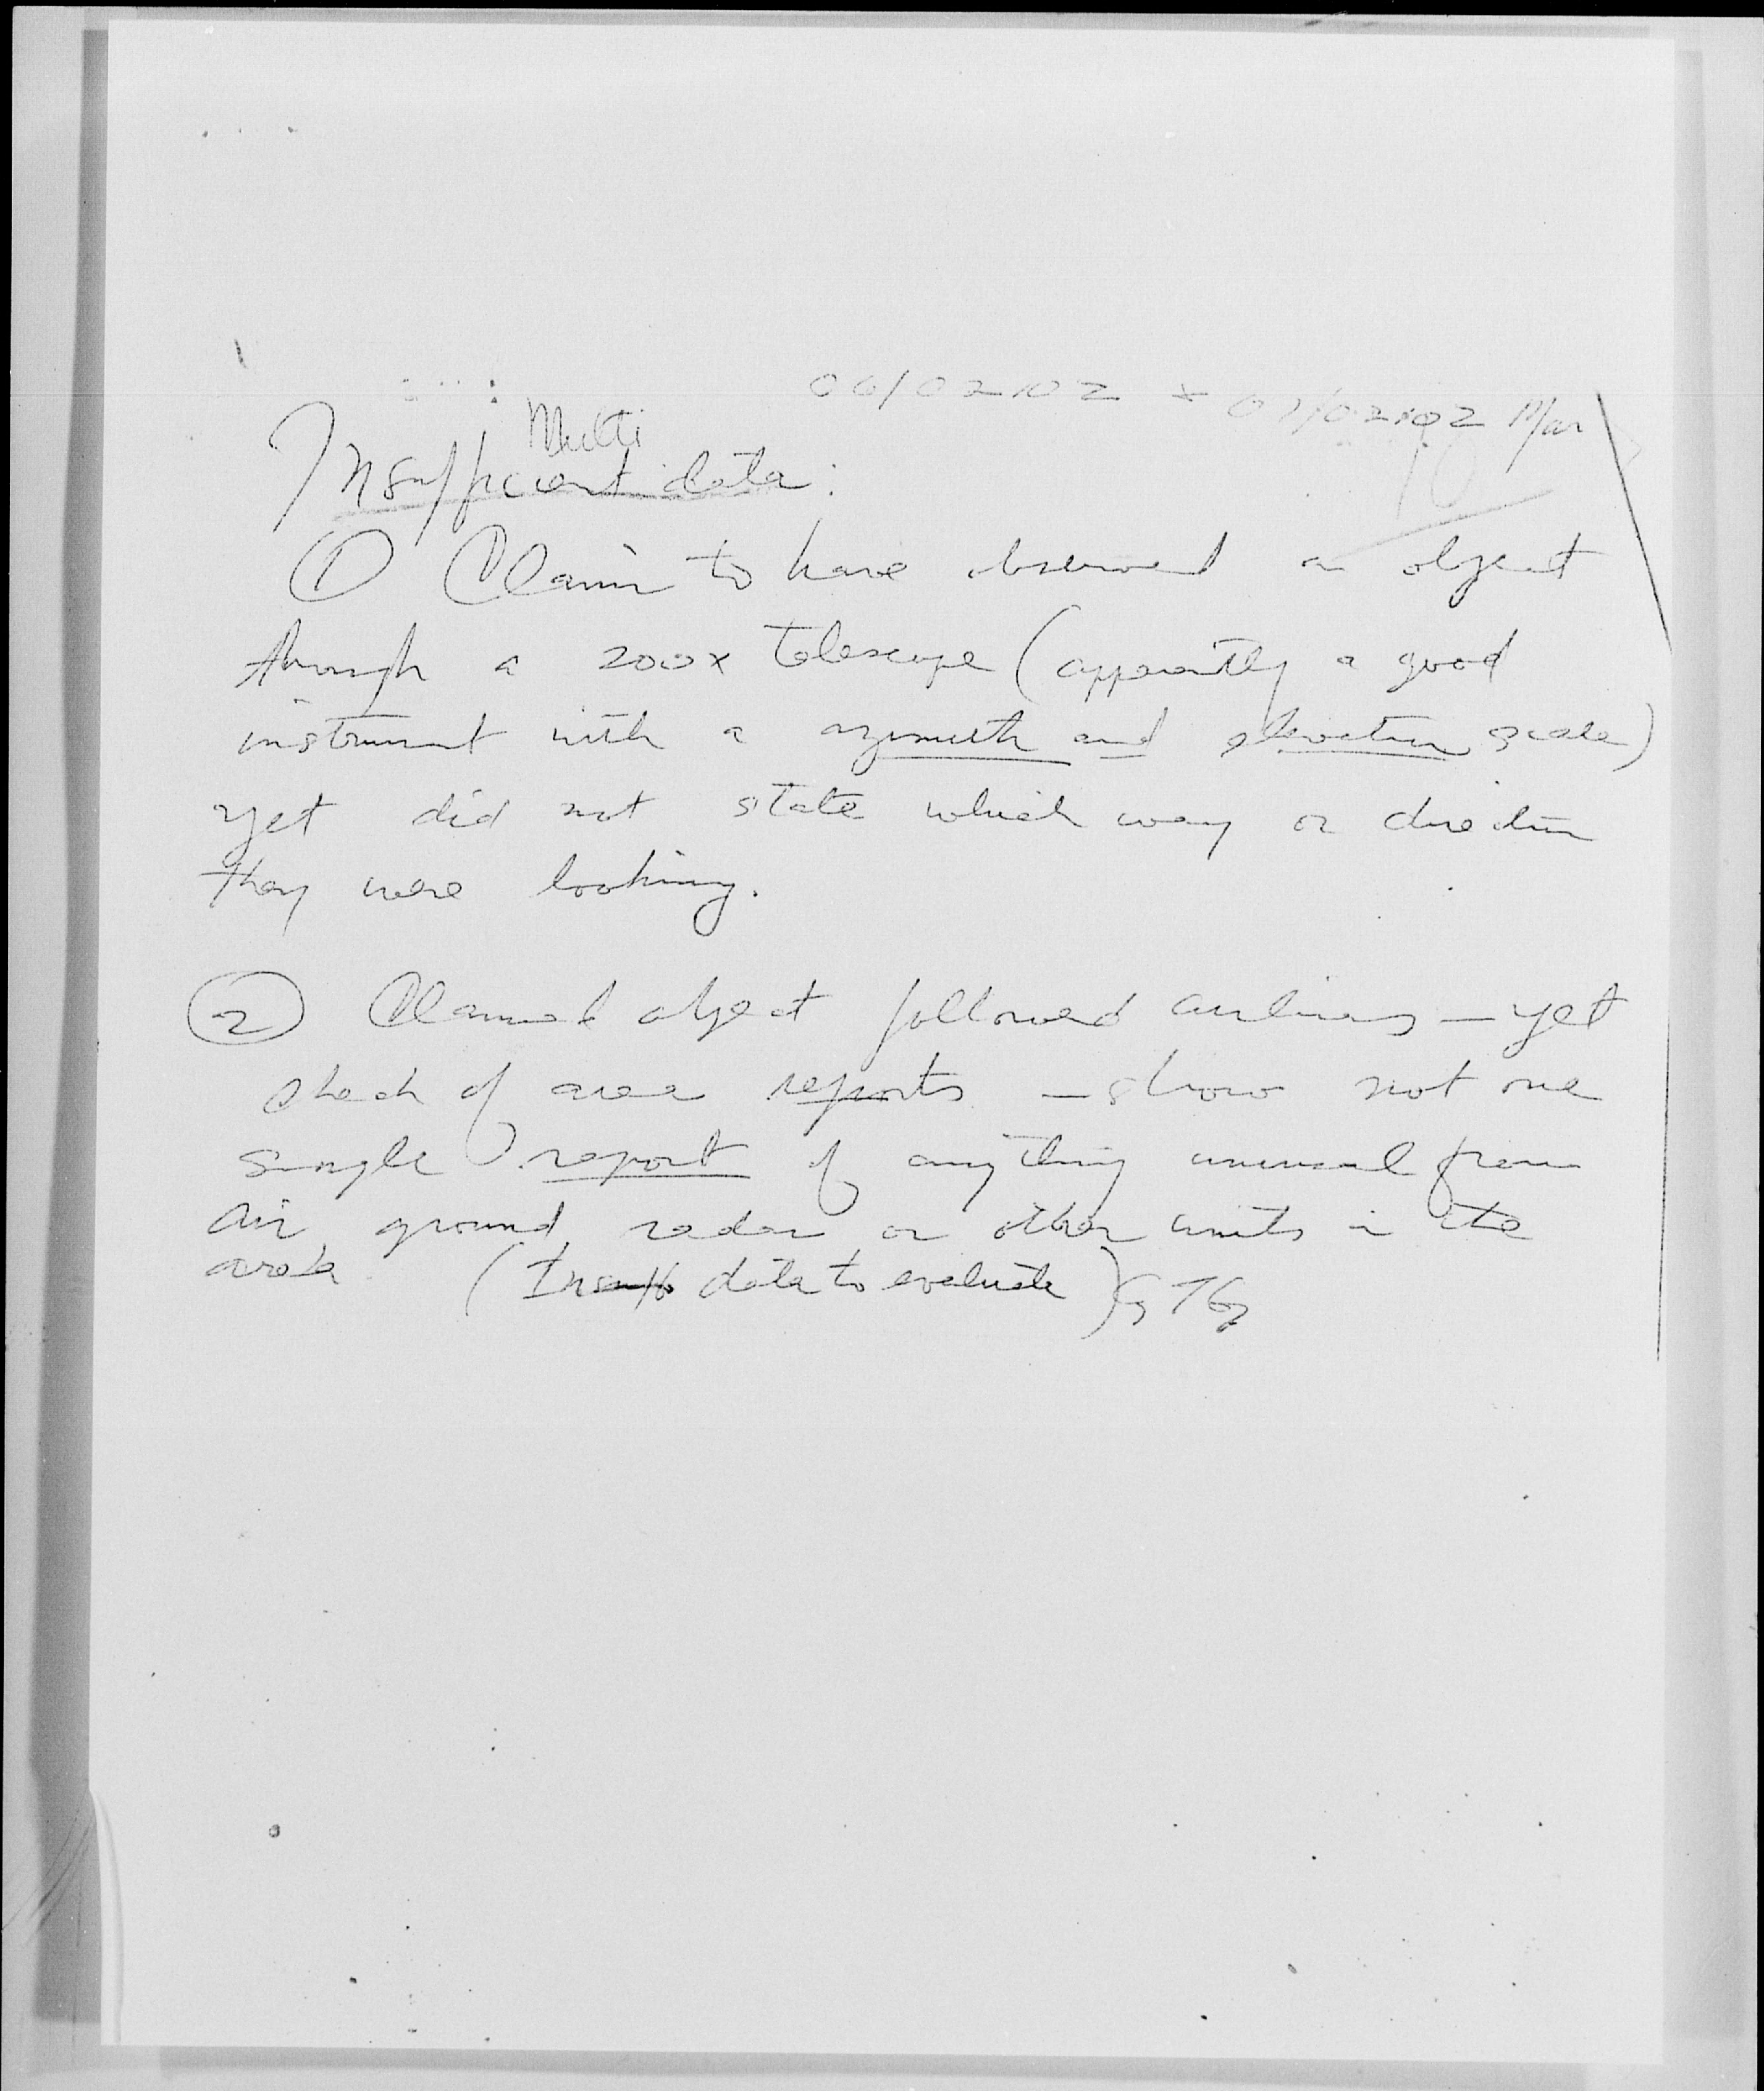 06/0210Z + 07/0210Z Mar
Multi
Insufficient data:
① Claim to have observed an object
through a 200x telescope (apparently a good
instrument with a azimuth and elevation scale)
yet did not state which way or direction
they were looking.
② Claimed object followed airliners — yet
check of area reports — show not one
single report of anything unusual from
air, ground, radar or other units in the
area. (Insuff data to evaluate)